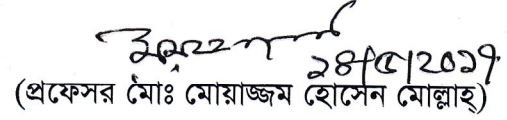 ২৪/৫/2027
(প্রফেসর মোঃ মোয়াজ্জম হোসেন মোল্লাহ্)